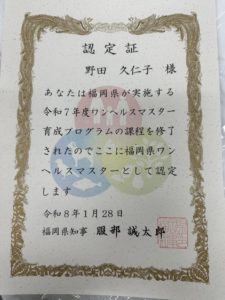 認定証
野田 久仁子 様
あなたは福岡県が実施する
令和7年度ワンヘルスマスター
育成プログラムの課程を修了
されたのでここに福岡県ワン
ヘルスマスターとして認定
します
令和8年1月28日
福岡県知事 服部 誠太郎